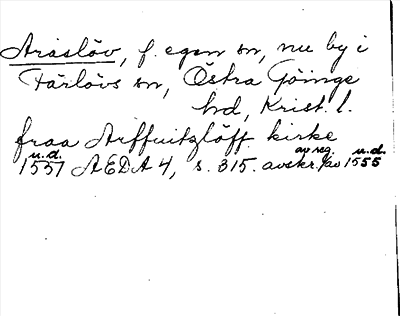 Araslöv, f. egen sn, nu by i
Färlövs sn, Östra Göinge
hd, Krist. l.
fraa Arffuitzlöff kirke
u.d. av reg. u.d.
1557 AEDA 4, s. 315. avskr. f/av 1555